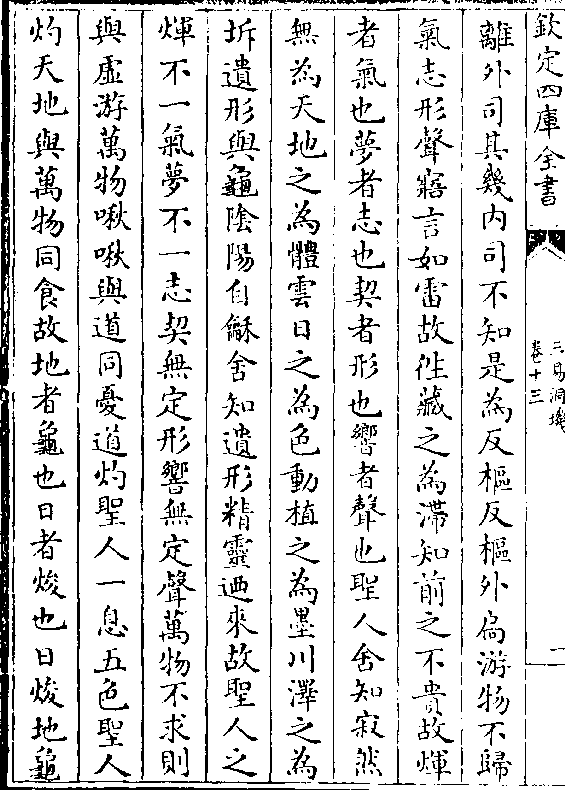 欽定四庫全書
三易洞璣
卷十三
離外司其幾内司不知是為反樞反樞外扃游物不歸
氣志形聲寤言如雷故徃藏之為滯知前之不貴故煇
者氣也夢者志也契者形也響者聲也聖人舍知寂然
無為天地之為體雲日之為色動植之為墨川澤之為
坼遺形與龜陰陽自龢舍知遺形精靈迺來故聖人之
煇不一氣夢不一志契無定形響無定聲萬物不求則
與虚游萬物啾啾與道同憂道灼聖人一息五色聖人
灼天地與萬物同食故地者龜也日者焌也日焌地龜